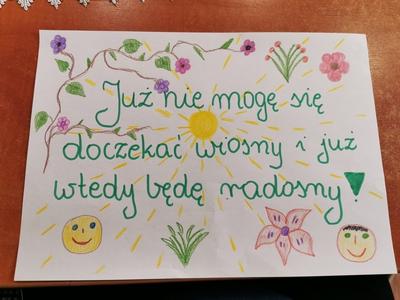 Już nie mogę się
doczekać wiosny i już
wtedy będę radosny!